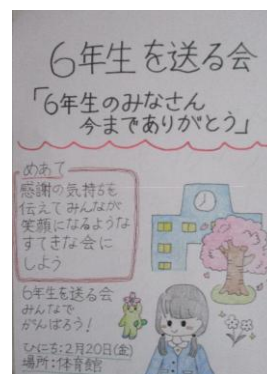 6年生を送る会
「6年生のみなさん
今までありがとう」
めあて
感謝の気持ちを
伝えてみんなが
笑顔になるような
すてきな会に
しよう
6年生を送る会
みんなで
がんばろう!
ひにち:2月20日(金)
場所:体育館